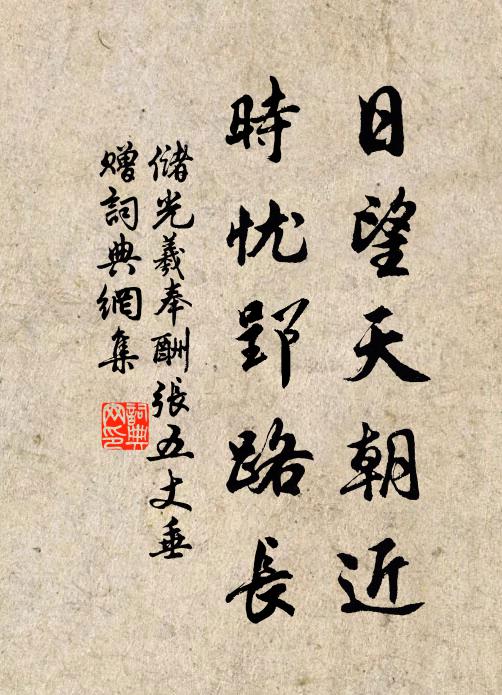 日望天朝近
時忧郢路長
儲光羲奉酬張五丈垂
赠詞典網集
詞典网印